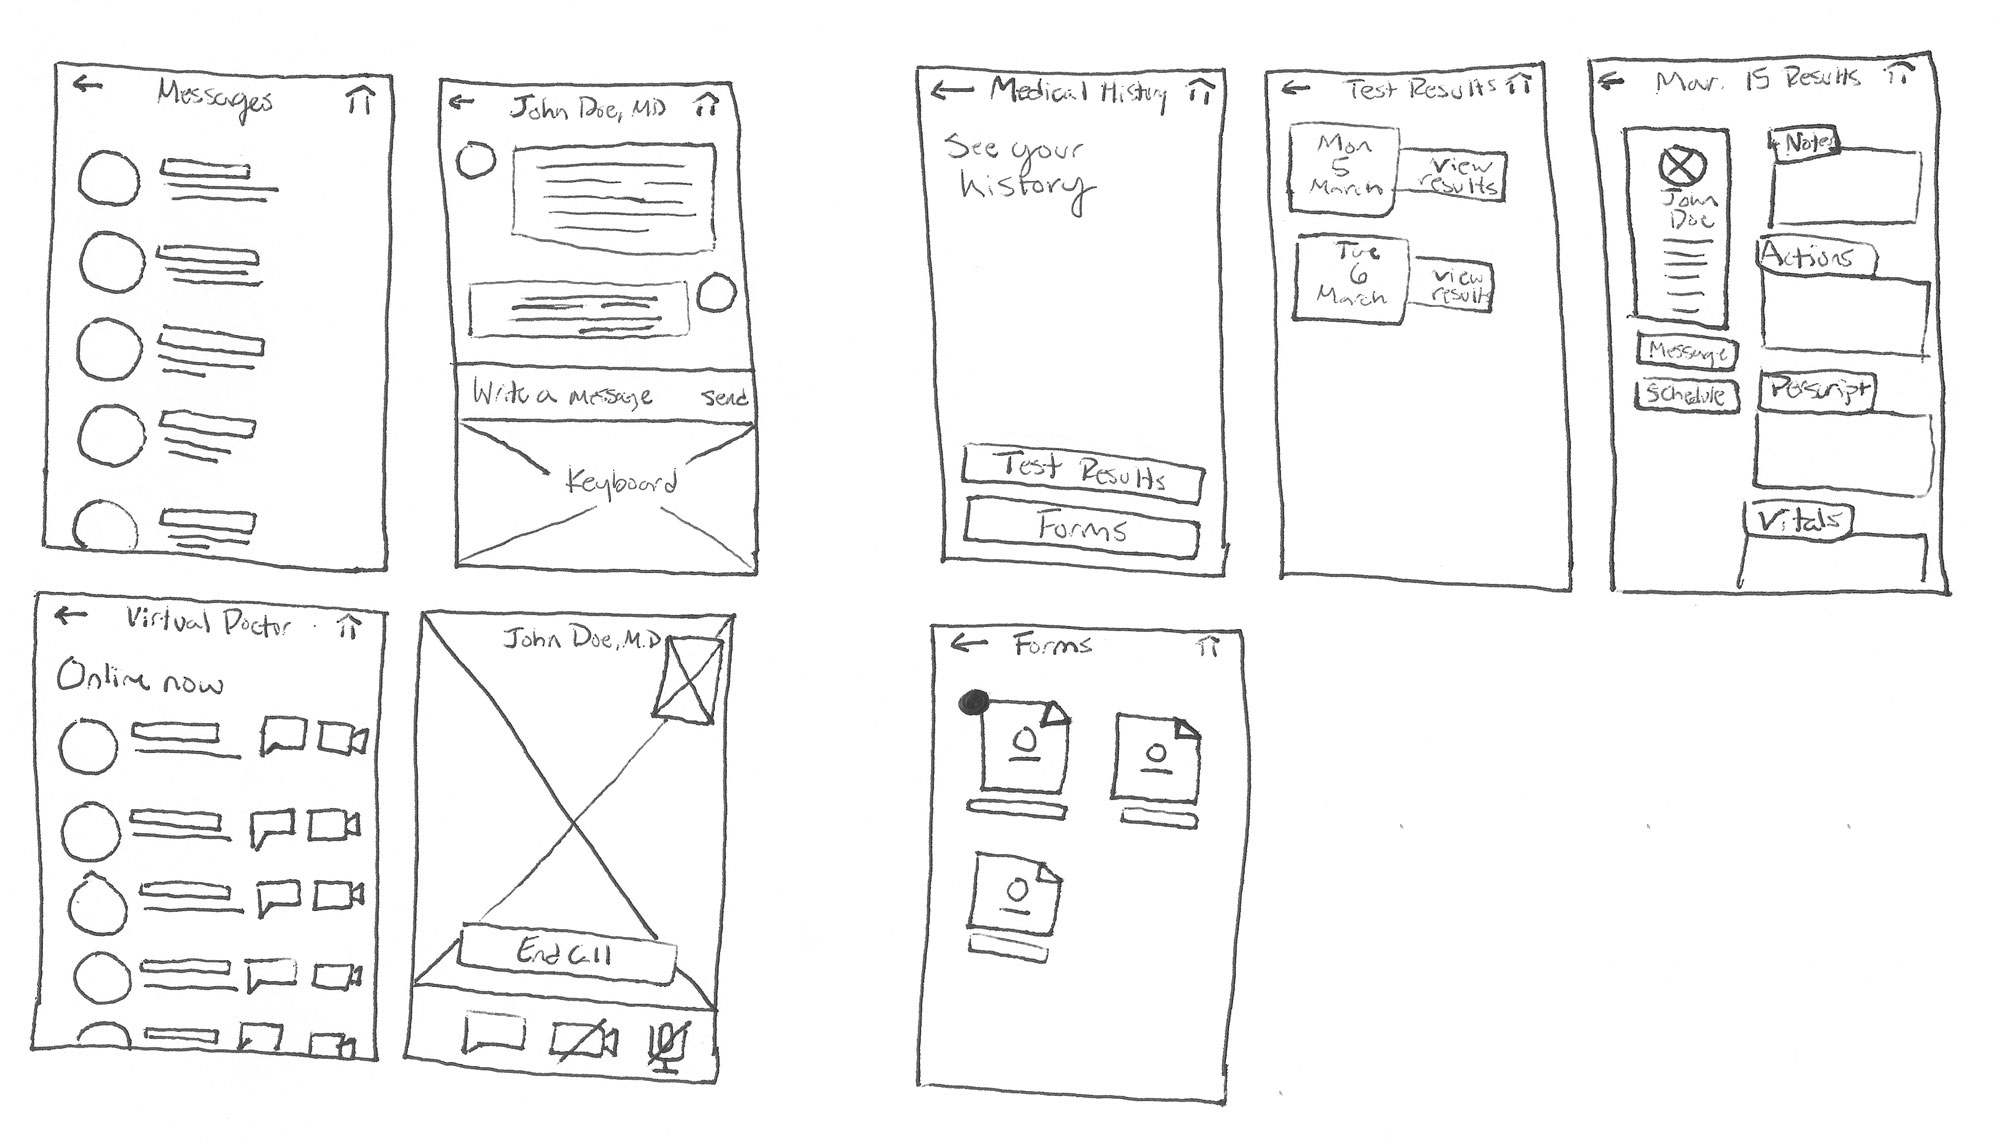 Messages
John Doe, MD
Write a message
send
Keyboard
Medical History
See your
history
Test Results
Forms
Test Results
Mon
5
March
View
results
Tue
6
March
View
results
Mar. 15 Results
John
Doe
Message
Schedule
Notes
Actions
Perscript
Vitals
Virtual Doctor
Online now
John Doe, M.D
End Call
Forms